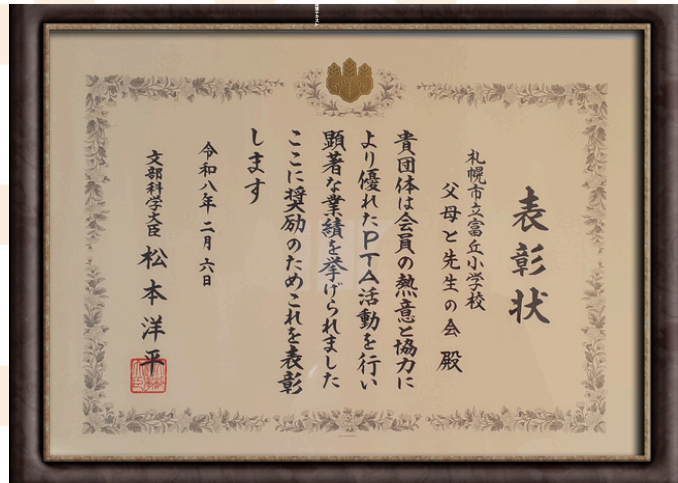 表彰状
札幌市立富丘小学校
父母と先生の会 殿
貴団体は会員の熱意と協力に
より優れたPTA活動を行い
顕著な業績を挙げられました
ここに奨励のためこれを表彰
します
令和八年二月六日
文部科学大臣 松本洋平